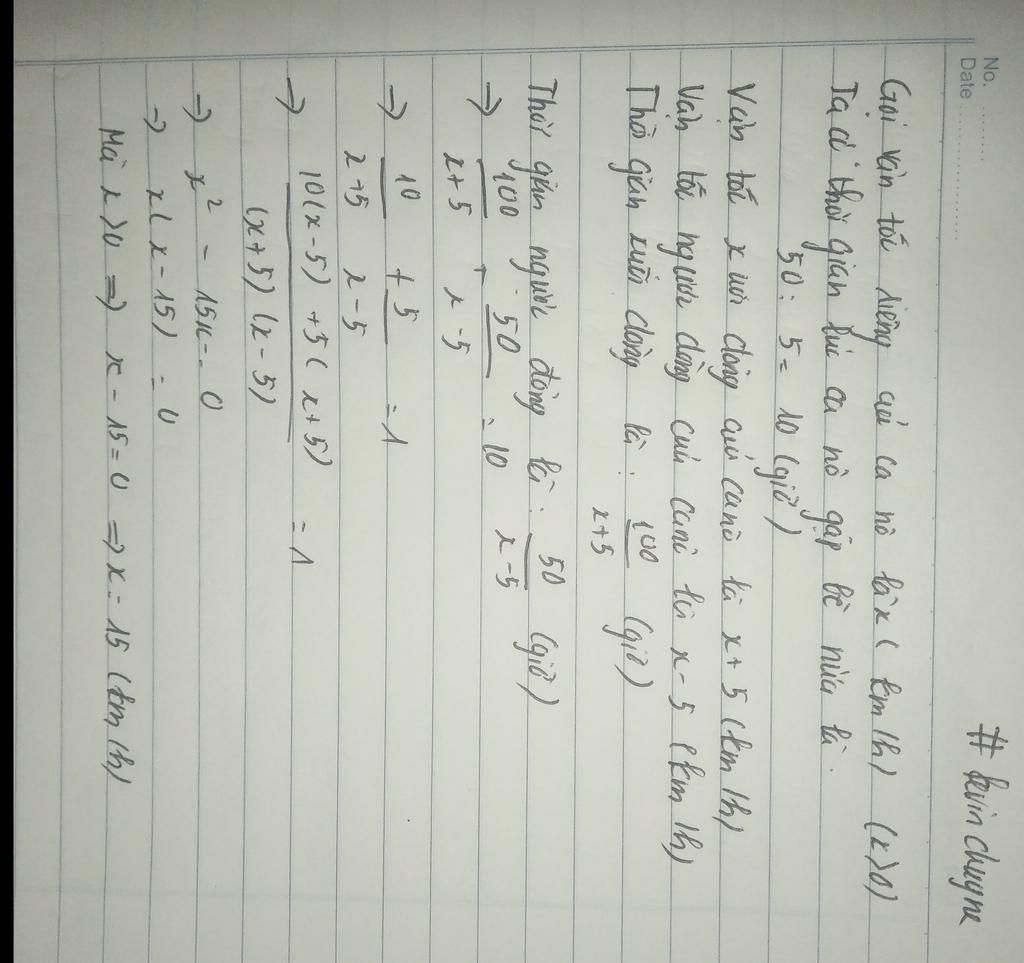 No. ............
Date ....................
# kevin chuyne
Gọi vận tốc riêng của ca nô là x ( km/h) (x>0)
Ta có thời gian lúc ca nô gặp bè nứa là.
50 : 5 = 10 (giờ)
Vận tốc xuôi dòng của canô là x + 5 (km/h)
Vận tốc ngược dòng của canô là x - 5 (km/h)
Thời gian xuôi dòng là : 100/x+5 (giờ)
Thời gian ngược dòng là : 50/x-5 (giờ)
→ 100/x+5 + 50/x-5 = 10
→ 10/x+5 + 5/x-5 = 1
→ 10(x-5) + 5(x+5)/(x+5)(x-5) = 1
→ x² - 15x = 0
→ x(x-15) = 0
Mà x>0 => x-15=0 => x = 15 (km/h)